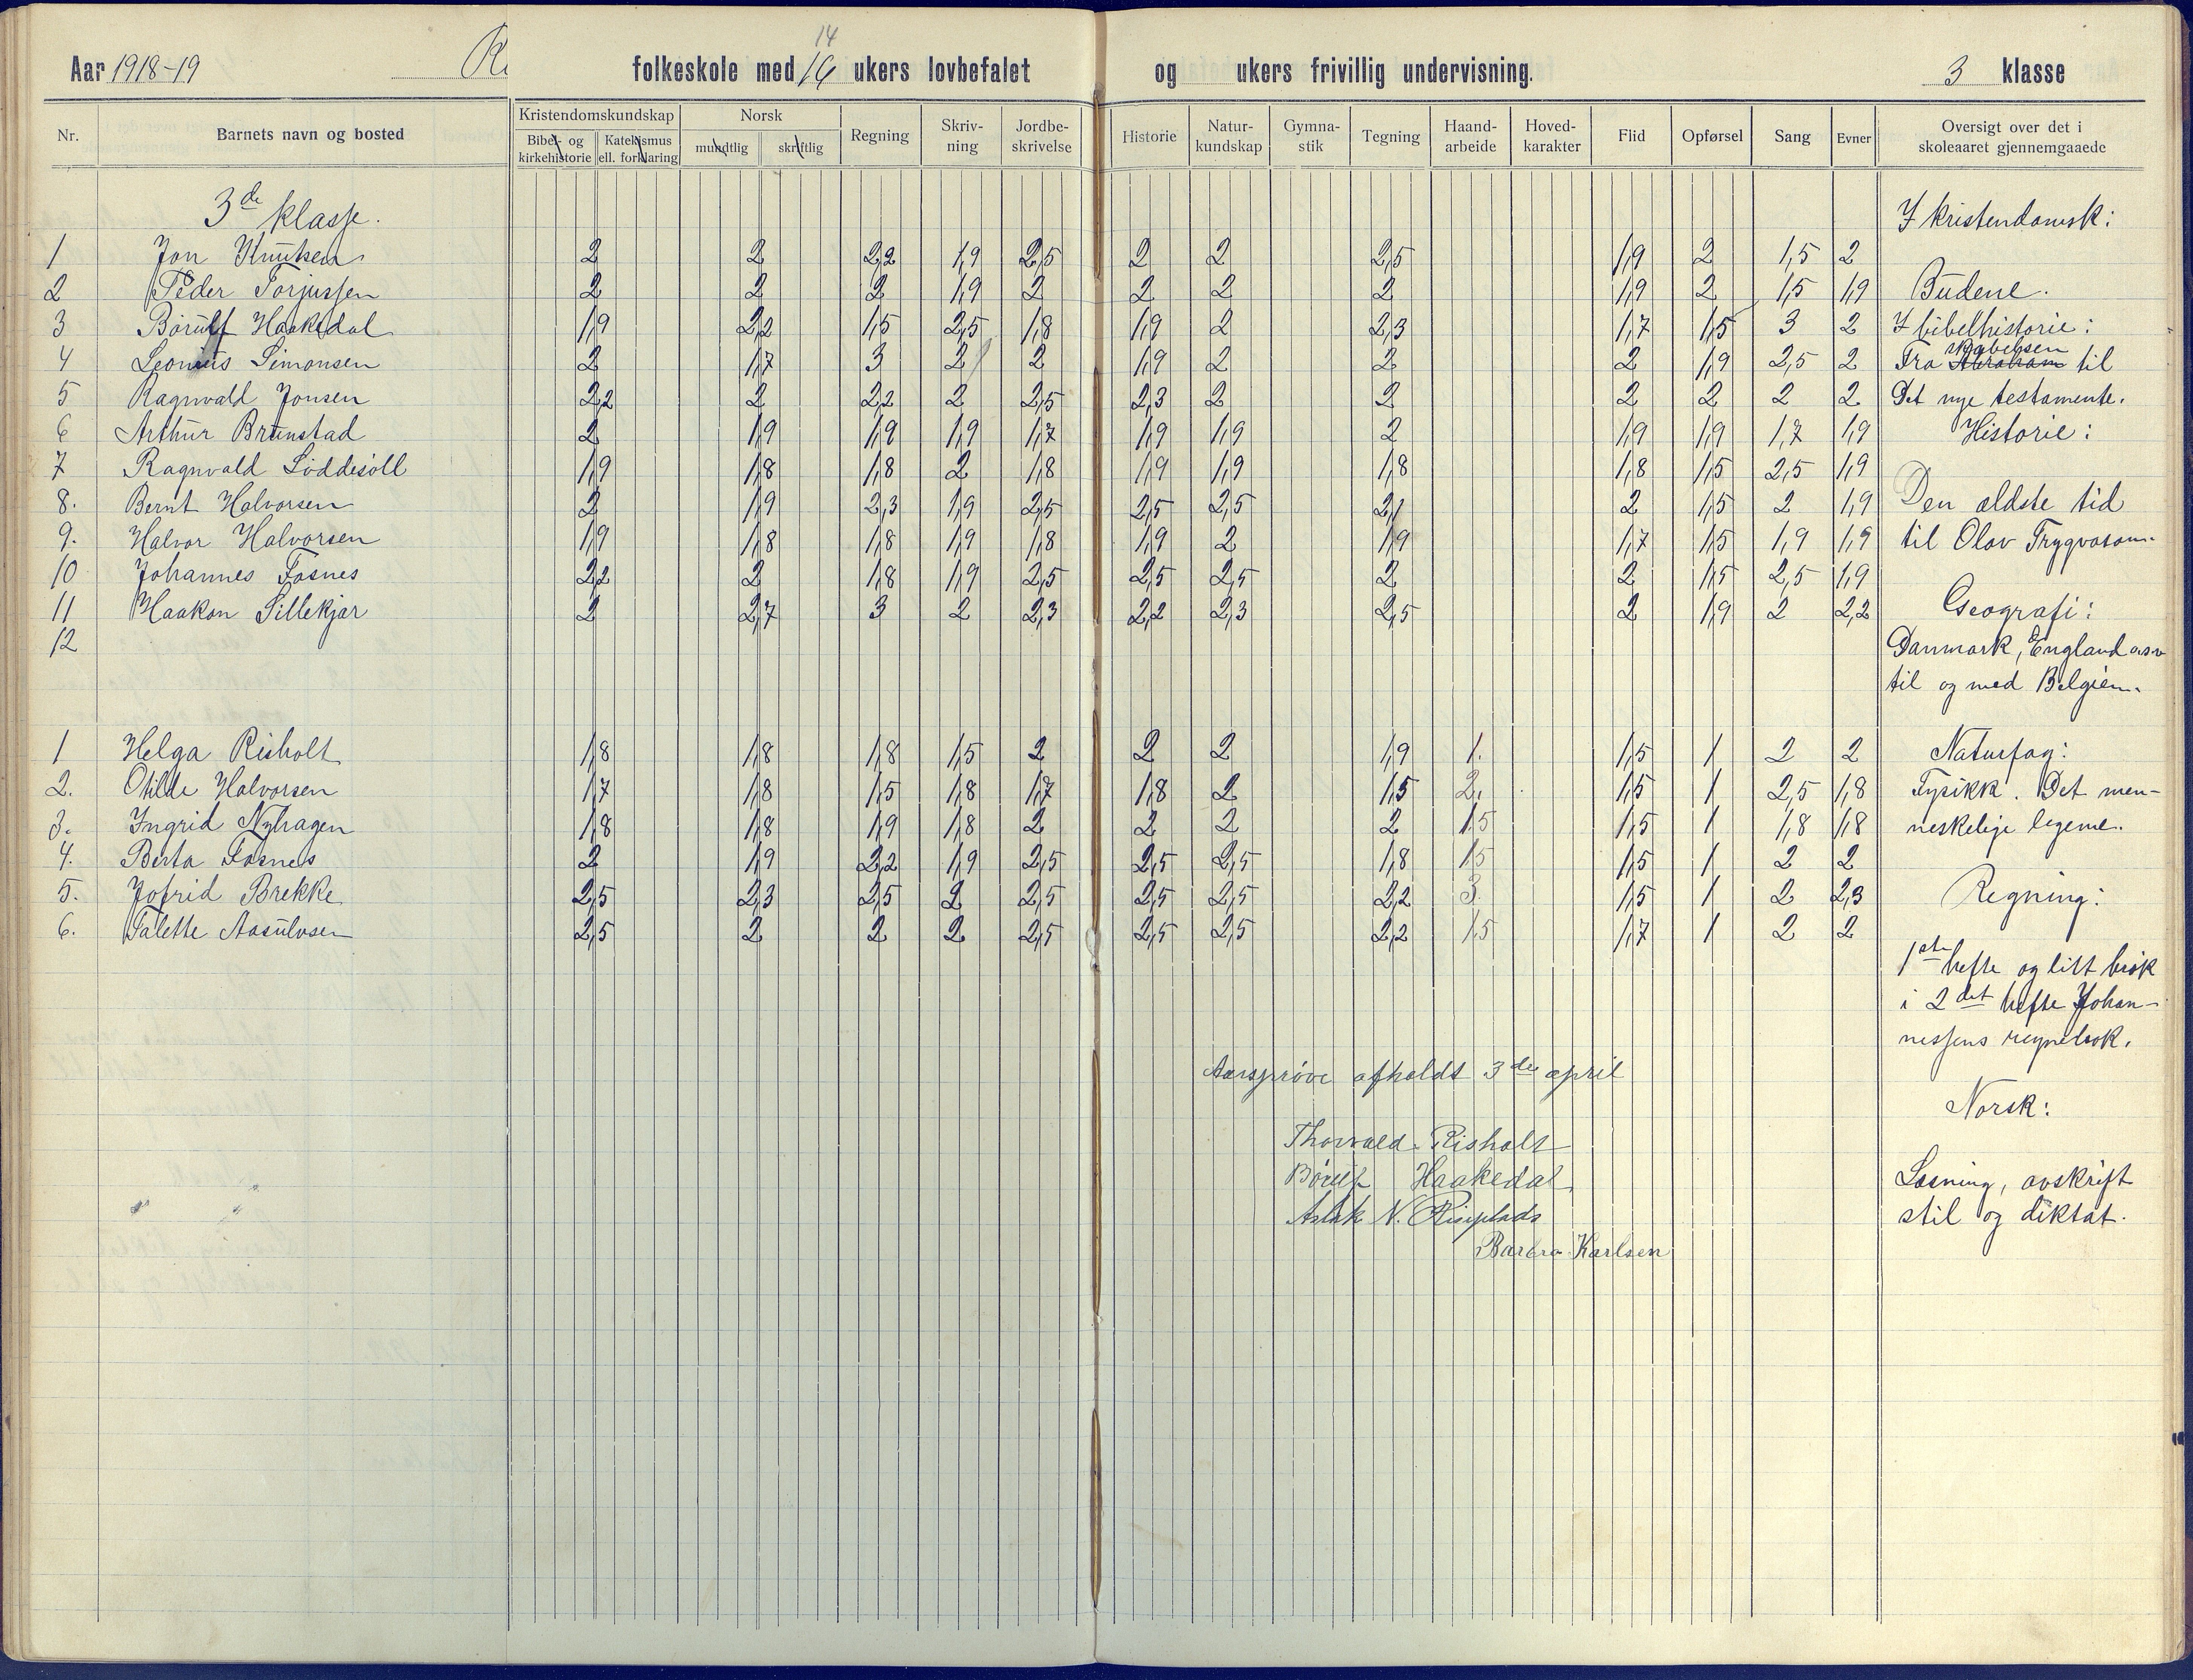 14
Aar 1918-19 folkeskole med 16 ukers lovbefalet og ukers frivillig undervisning. 3 klasse
Nr. Barnets navn og bosted Kristendomskundskap Norsk Regning Skriv-ning Jordbe-skrivelse Historie Natur-kundskap Gymna-stik Tegning Haand-arbeide Hoved-karakter Flid Opførsel Sang Evner Oversigt over det i skoleaaret gjennemgaaede
Bibel- og kirkehistorie Katekismus ell. forklaring mundtlig skriftlig
3de klasse.
I kristendomsk:
1 Jon Knutsen 2 2 2,2 1,9 2,5 2 2 2,5 1,9 2 1,5 2
2 Peder Torjussen 2 2 2 1,9 2 2 2 2 1,9 2 1,5 1,9 Budene.
3 Børulf Haakedal 1,9 2,2 1,5 2,5 1,8 1,9 2 2,3 1,7 1,5 3 2 I bibelhistorie:
4 Leonius Simonsen 2 1,7 3 2 2 1,9 2 2 2 1,9 2,5 2 Fra Abraham skabelsen til
5 Ragnvald Jonsen 2,2 2 2,2 2 2,5 2,3 2 2 2 2 2 2 Det nye testamente.
6 Arthur Brunstad 2 1,9 1,9 1,9 1,7 1,9 1,9 2 1,9 1,9 1,7 1,9 Historie:
7 Ragnvald Løddesøll 1,9 1,8 1,8 2 1,8 1,9 1,9 1,8 1,8 1,5 2,5 1,9
8. Bernt Halvorsen 2 1,9 2,3 1,9 2,5 2,5 2,5 2,1 2 1,5 2 1,9 Den ældste tid
9. Halvor Halvorsen 1,9 1,8 1,8 1,9 1,8 1,9 2 1,9 1,7 1,5 1,9 1,9 til Olav Trygvason.
10 Johannes Fosnes 2,2 2 1,8 1,9 2,5 2,5 2,5 2 2 1,5 2,5 1,9
11 Haakon Sillekjær 2 2,7 3 2 2,3 2,2 2,3 2,5 2 1,9 2 2,2 Geografi:
12 Danmark, England o.s.v
til og med Belgien.
1 Helga Risholt 1,8 1,8 1,8 1,5 2 2 2 1,9 1. 1,5 1 2 2 Naturfag:
2. Otilde Halvorsen 1,7 1,8 1,5 1,8 1,7 1,8 2 1,5 2. 1,5 1 2,5 1,8 Fysikk. Det men-
3. Ingrid Nyhagen 1,8 1,8 1,9 1,8 2 2 2 2 1,5 1,5 1 1,8 1,8 neskelige legeme.
4. Berta Fosnes 2 1,9 2,2 1,9 2,5 2,5 2,5 1,8 1,5 1,5 1 2 2
5. Jofrid Brekke 2,5 2,3 2,5 2 2,5 2,5 2,5 2,2 3. 1,5 1 2 2,3 Regning:
6. Talette Aasulvsen 2,5 2 2 2 2,5 2,5 2,5 2,2 1,5 1,7 1 2 2
1ste hefte og litt brøk
i 2det hefte Johan-
nessens regnebok.
Aarsprøve afholdt 3die april
Norsk:
Thorvald Risholt
Børulf Haakedal
Læsning, avskrift
Aslak N. Risplads
stil og diktat.
Barbro Karlsen